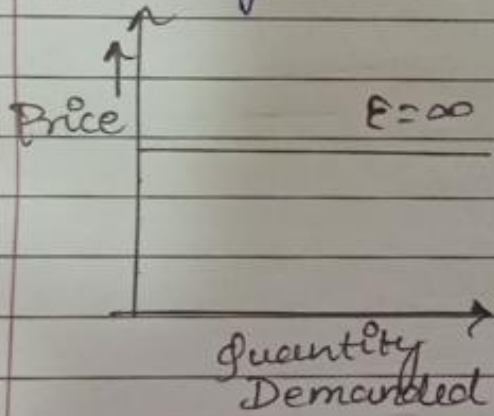 Price
E=∞
Quantity
Demanded